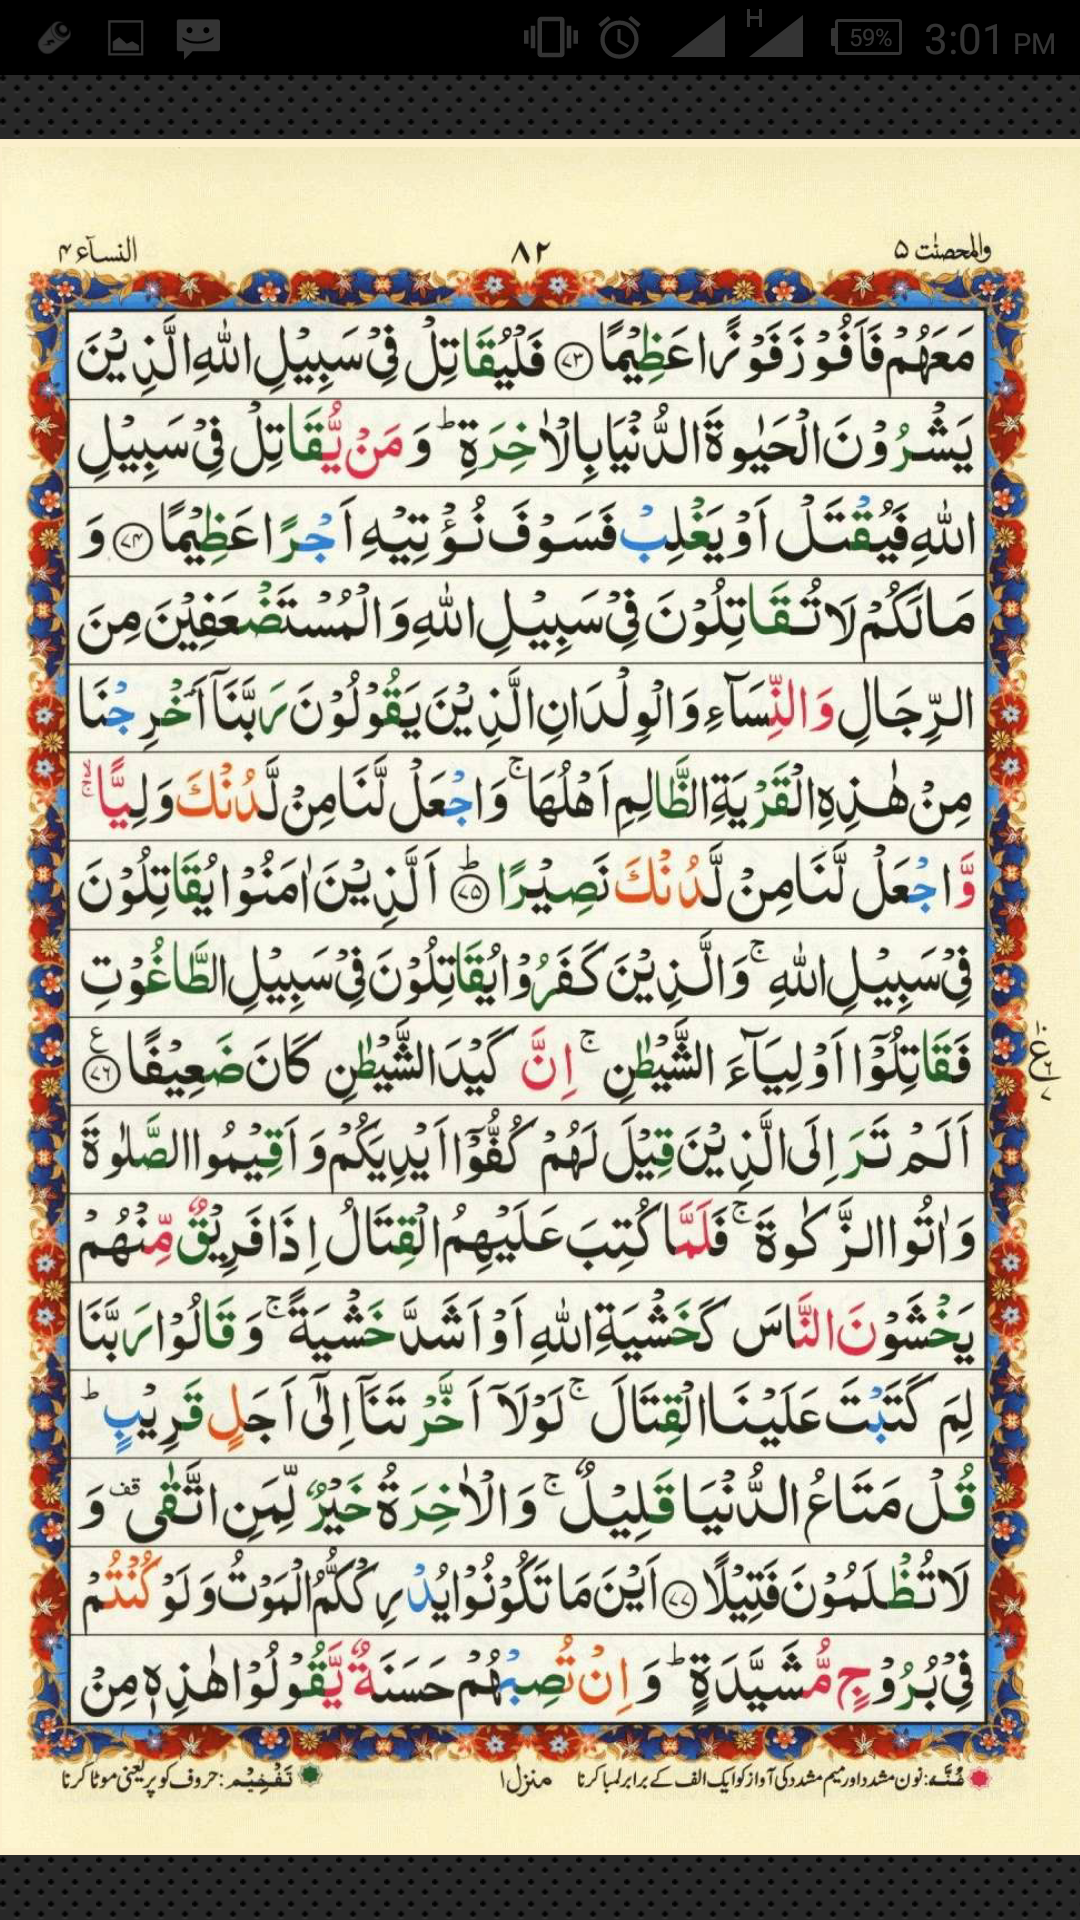 H 59% 3:01 PM
والمحصنٰت ۵ ۸۲ النسآء ۴
مَعَهُمْ فَاَفُوْزَ فَوْزًا عَظِيْمًا ﴿۷۳﴾ فَلْيُقَاتِلْ فِيْ سَبِيْلِ اللهِ الَّذِيْنَ
يَشْرُوْنَ الْحَيٰوةَ الدُّنْيَا بِالْاٰخِرَةِ ؕ وَ مَنْ يُّقَاتِلْ فِيْ سَبِيْلِ
اللهِ فَيُقْتَلْ اَوْ يَغْلِبْ فَسَوْفَ نُؤْتِيْهِ اَجْرًا عَظِيْمًا ﴿۷۴﴾ وَ
مَا لَكُمْ لَا تُقَاتِلُوْنَ فِيْ سَبِيْلِ اللهِ وَ الْمُسْتَضْعَفِيْنَ مِنَ
الرِّجَالِ وَ النِّسَآءِ وَ الْوِلْدَانِ الَّذِيْنَ يَقُوْلُوْنَ رَبَّنَاۤ اَخْرِجْنَا
مِنْ هٰذِهِ الْقَرْيَةِ الظَّالِمِ اَهْلُهَا ۚ وَ اجْعَلْ لَّنَا مِنْ لَّدُنْكَ وَلِيًّا ۙۚ
وَّ اجْعَلْ لَّنَا مِنْ لَّدُنْكَ نَصِيْرًا ﴿ؕ۷۵﴾ اَلَّذِيْنَ اٰمَنُوْا يُقَاتِلُوْنَ
فِيْ سَبِيْلِ اللهِ ۚ وَ الَّذِيْنَ كَفَرُوْا يُقَاتِلُوْنَ فِيْ سَبِيْلِ الطَّاغُوْتِ
فَقَاتِلُوْۤا اَوْلِيَآءَ الشَّيْطٰنِ ۚ اِنَّ كَيْدَ الشَّيْطٰنِ كَانَ ضَعِيْفًا ﴿۷۶﴾ ع
اَلَمْ تَرَ اِلَى الَّذِيْنَ قِيْلَ لَهُمْ كُفُّوْۤا اَيْدِيَكُمْ وَ اَقِيْمُوا الصَّلٰوةَ
وَ اٰتُوا الزَّكٰوةَ ۚ فَلَمَّا كُتِبَ عَلَيْهِمُ الْقِتَالُ اِذَا فَرِيْقٌ مِّنْهُمْ
يَخْشَوْنَ النَّاسَ كَخَشْيَةِ اللهِ اَوْ اَشَدَّ خَشْيَةً ۚ وَ قَالُوْا رَبَّنَا
لِمَ كَتَبْتَ عَلَيْنَا الْقِتَالَ ۚ لَوْلَاۤ اَخَّرْتَنَاۤ اِلٰۤى اَجَلٍ قَرِيْبٍ ؕ
قُلْ مَتَاعُ الدُّنْيَا قَلِيْلٌ ۚ وَ الْاٰخِرَةُ خَيْرٌ لِّمَنِ اتَّقٰى قف وَ
لَا تُظْلَمُوْنَ فَتِيْلًا ﴿۷۷﴾ اَيْنَ مَا تَكُوْنُوْا يُدْرِكْكُّمُ الْمَوْتُ وَ لَوْ كُنْتُمْ
فِيْ بُرُوْجٍ مُّشَيَّدَةٍ ؕ وَ اِنْ تُصِبْهُمْ حَسَنَةٌ يَّقُوْلُوْا هٰذِهٖ مِنْ
غُنَّه: نون مشدد اور میم مشدد کی آواز کو ایک الف کے برابر لمبا کرنا منزل ۱ تَفْخِیْم: حروف کو پر یعنی موٹا کرنا